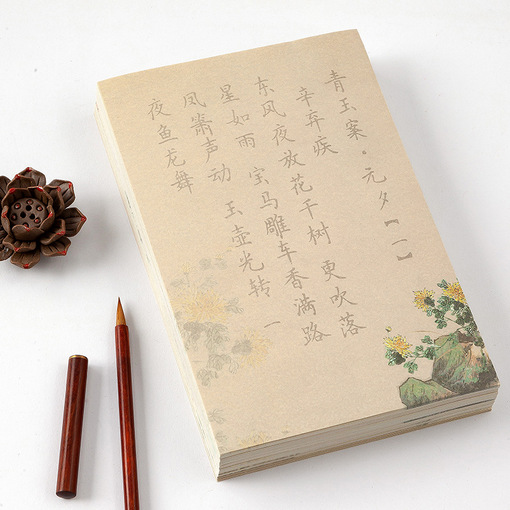 青玉案·元夕【一】
辛弃疾
东风夜放花千树 更吹落
星如雨 宝马雕车香满路
凤箫声动 玉壶光转 一
夜鱼龙舞